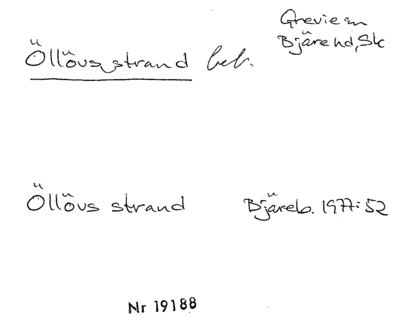 Grevie sn
Bjäre hd, Sk
Öllövs strand beb.
Öllövs strand Bjäreb. 1977:52
Nr 19188